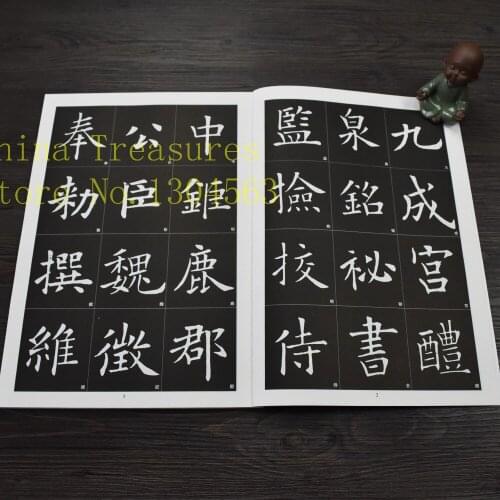 九成宮醴
泉銘祕書
監撿挍侍
中鉅鹿郡
公臣魏徵
奉勑撰維
hina Treasures
tore No.1304563
2